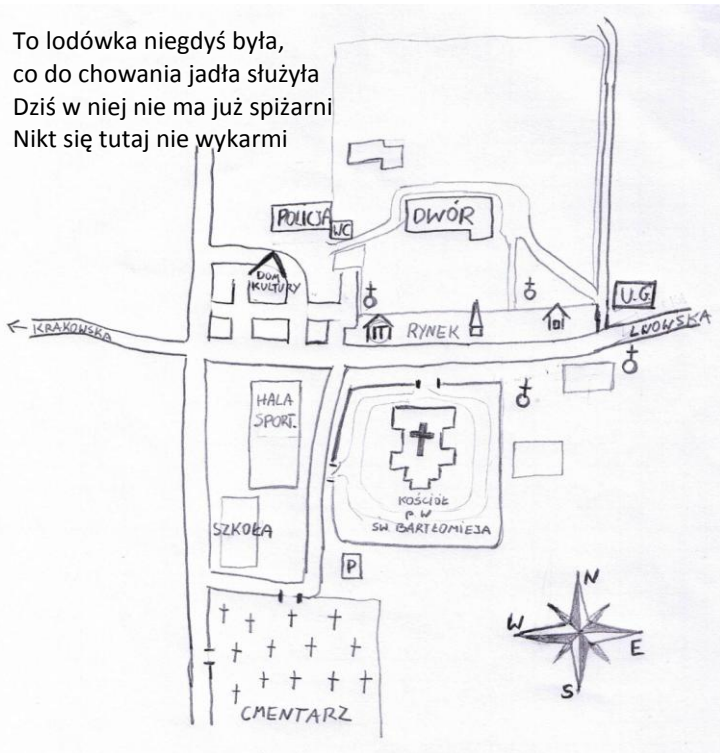 To lodówka niegdyś była,
co do chowania jadła służyła
Dziś w niej nie ma już spiżarni
Nikt się tutaj nie wykarmi
POLICJA
WC
DWÓR
DOM
KULTURY
U.G.
← KRAKOWSKA
IT
RYNEK
LWOWSKA
HALA
SPORT.
KOŚCIÓŁ
P W
ŚW. BARTŁOMIEJA
SZKOŁA
P
N
W
E
S
CMENTARZ